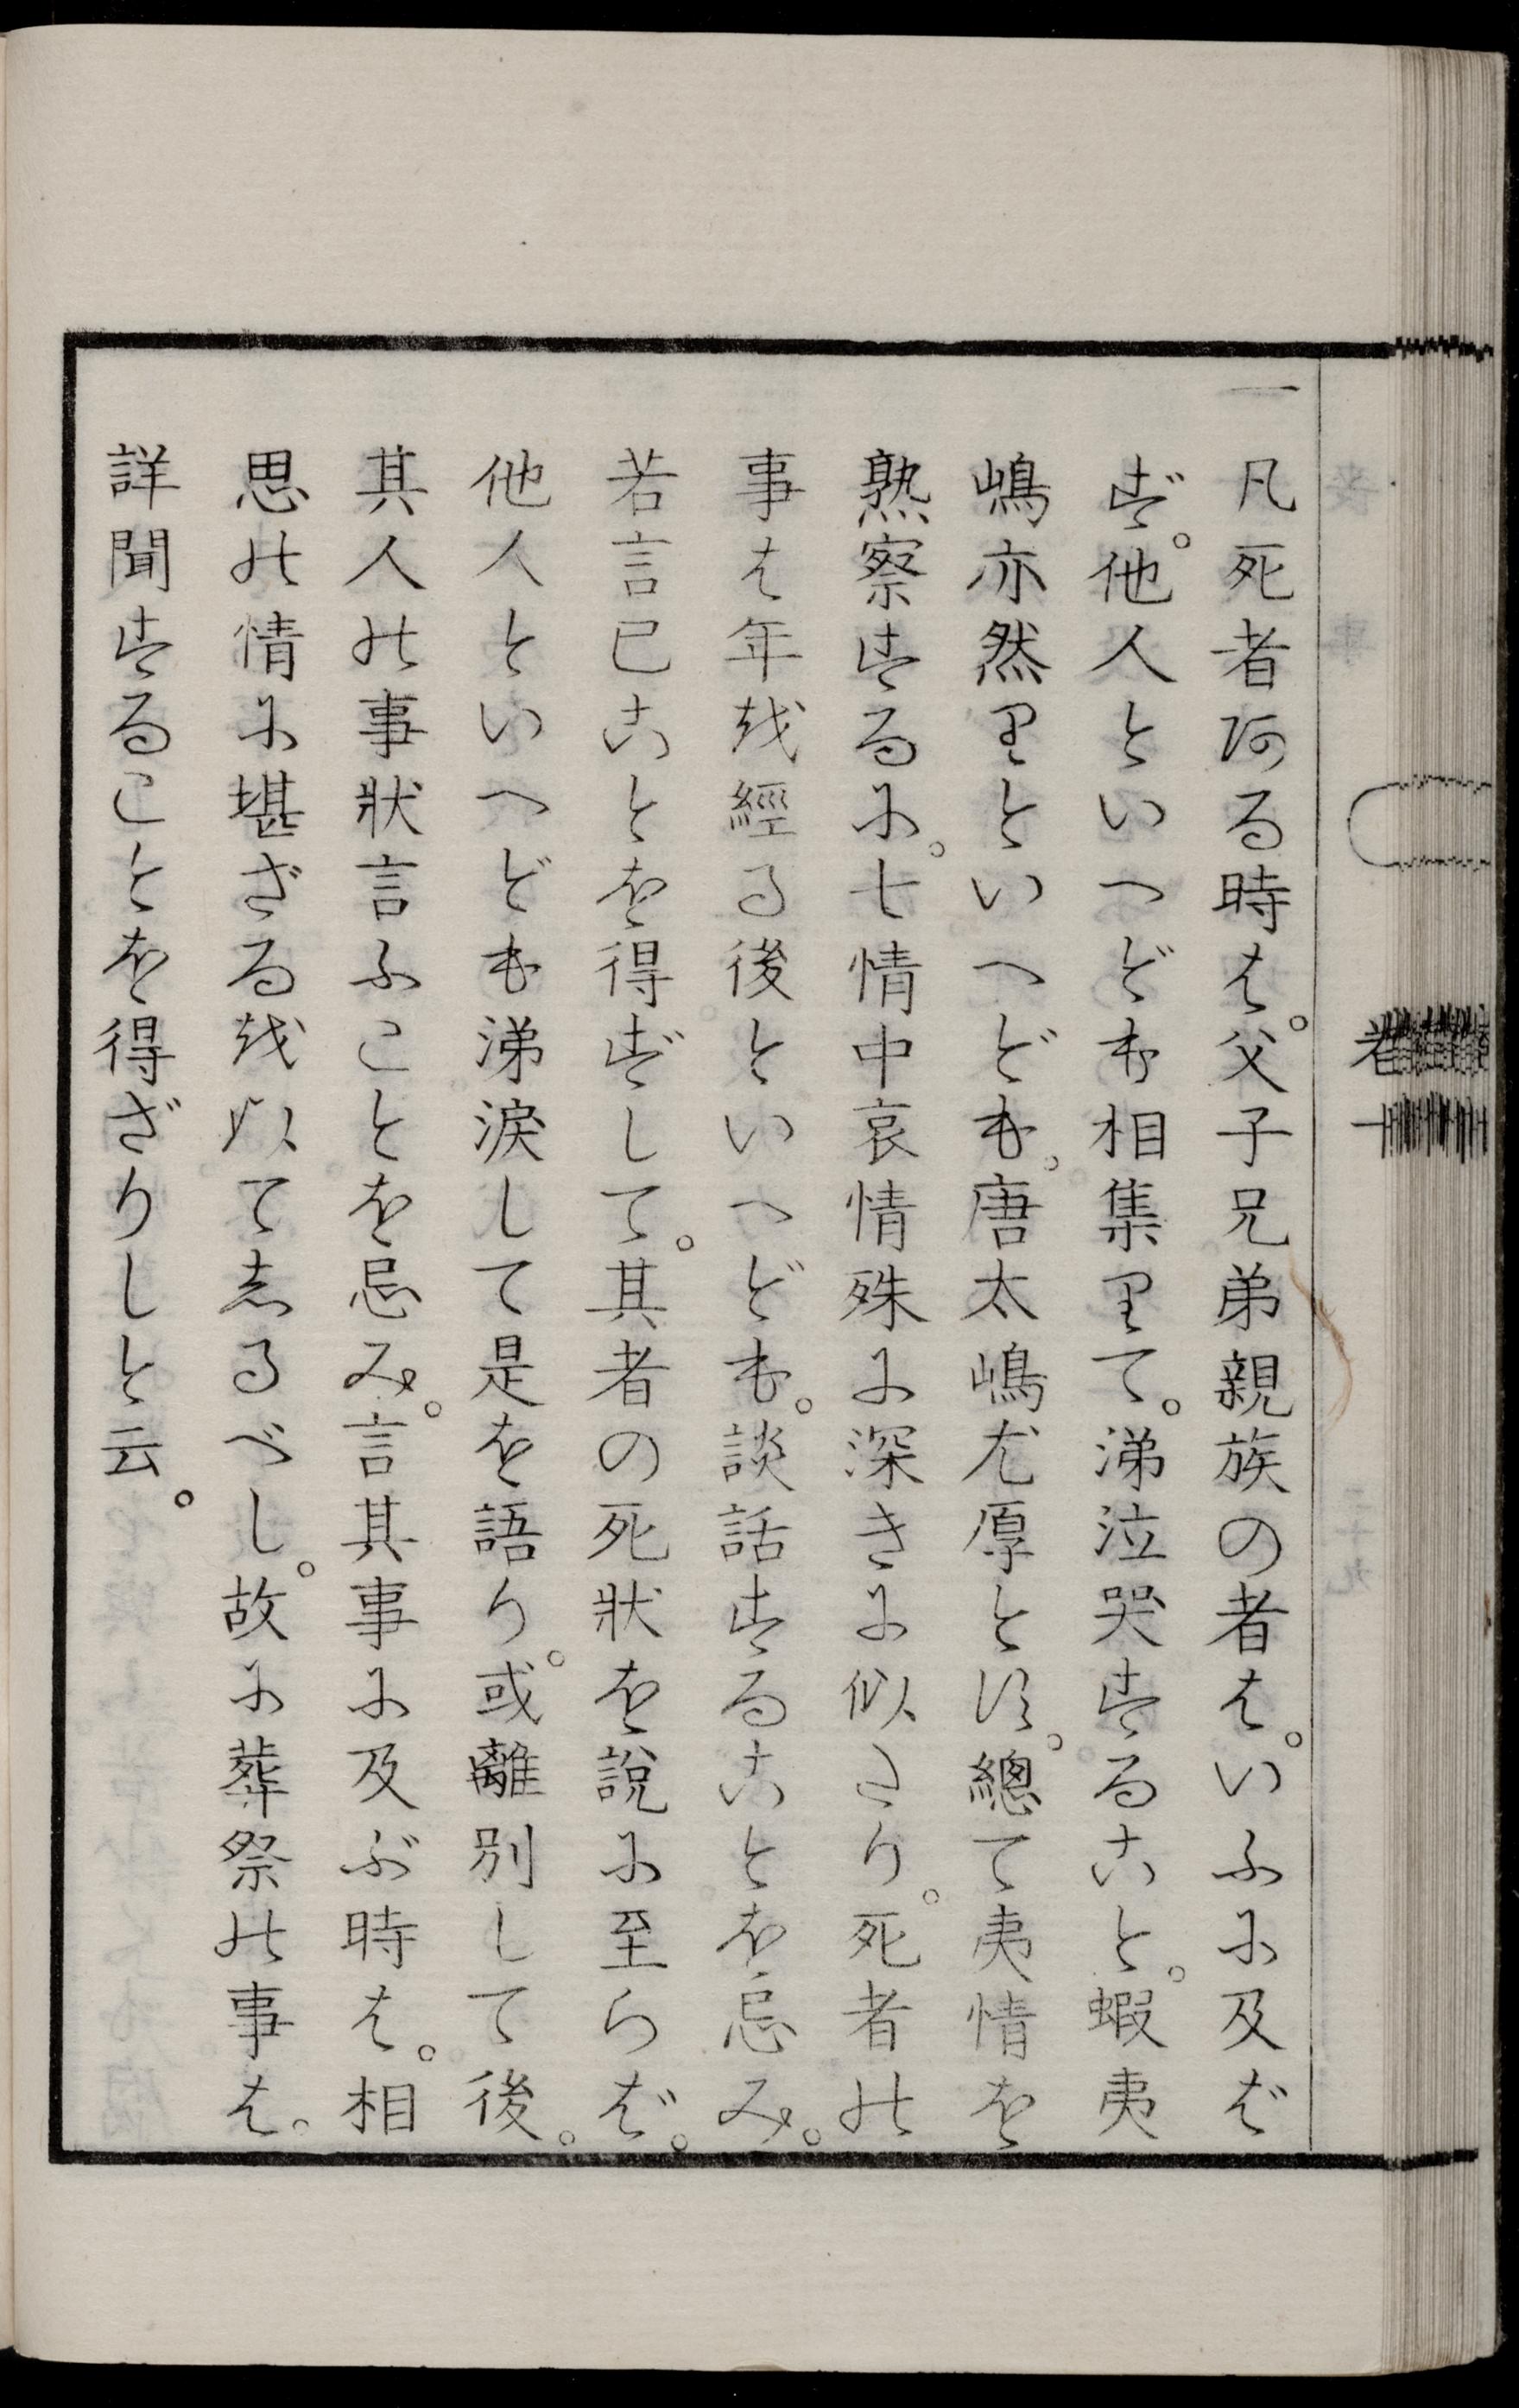 一凡死者ある時は。父子兄弟親族の者は。いふに及ば
ず。他人といへども相集りて。涕泣哭することと。蝦夷
嶋亦然りといへども。唐太嶋尤厚とす。總て夷情を
熟察するに。七情中哀情殊に深きに似たり。死者の
事は年を經る後といへども。談話することを忌み。
若言已ことを得ずして。其者の死狀を說に至らば。
他人といへども涕淚して是を語り。或離別して後。
其人の事狀言ふことを忌み。言其事に及ぶ時は。相
思の情に堪ざるを以てしるべし。故に葬祭の事は。
詳聞することを得ざりしと云。